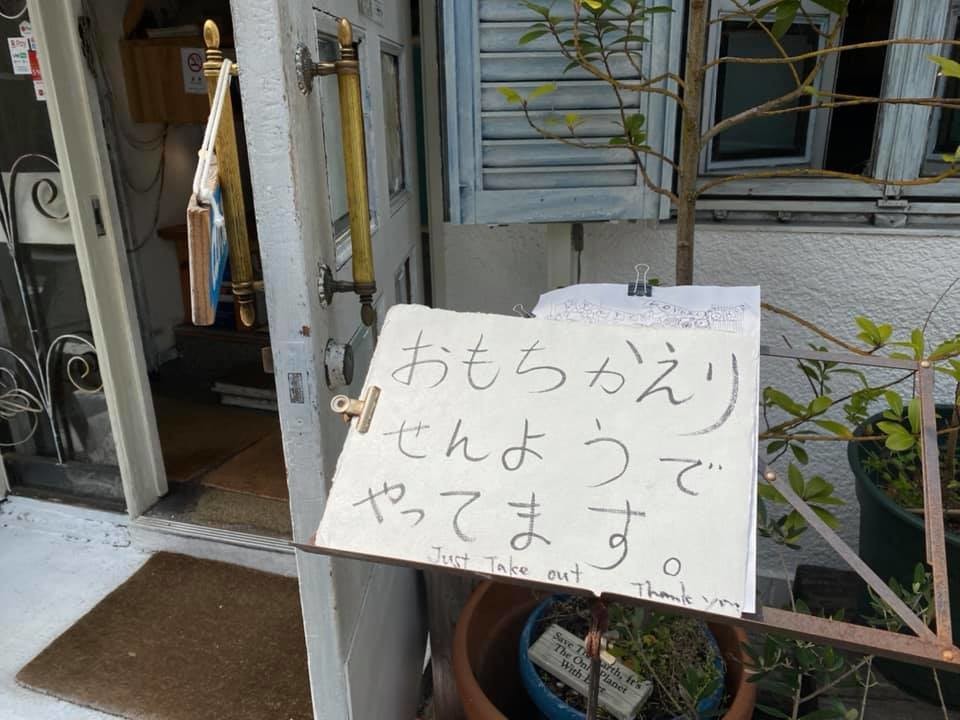 おもちかえり
せんようで
やってます。
Just Take out Thank you
Save The Earth, It's
The Only Planet
With
Pay